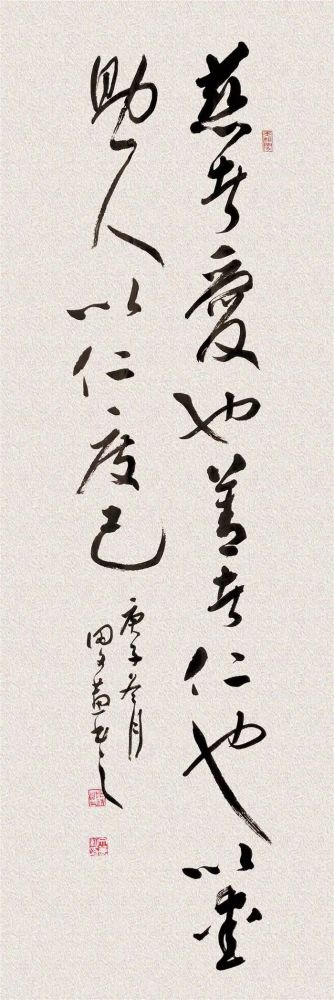 慈者愛也善者仁也以爱
助人以仁度己
庚子冬月
田文书之